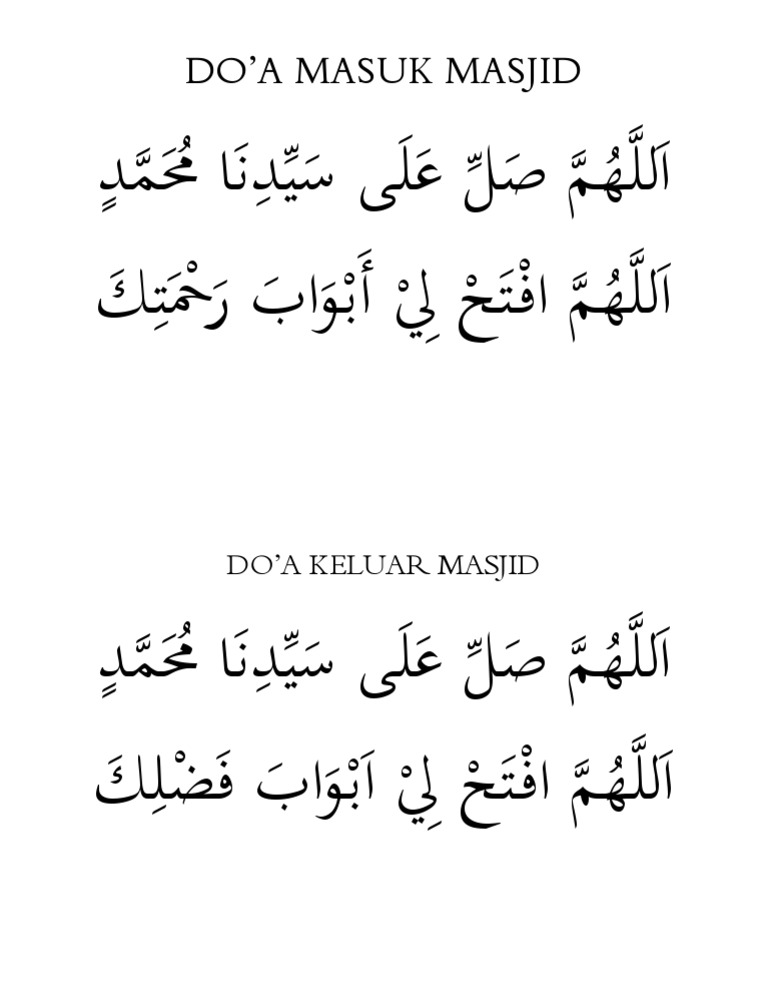 DO’A MASUK MASJID
اَللَّهُمَّ صَلِّ عَلَى سَيِّدِنَا مُحَمَّدٍ
اَللَّهُمَّ افْتَحْ لِيْ أَبْوَابَ رَحْمَتِكَ
DO’A KELUAR MASJID
اَللَّهُمَّ صَلِّ عَلَى سَيِّدِنَا مُحَمَّدٍ
اَللَّهُمَّ افْتَحْ لِيْ اَبْوَابَ فَضْلِكَ